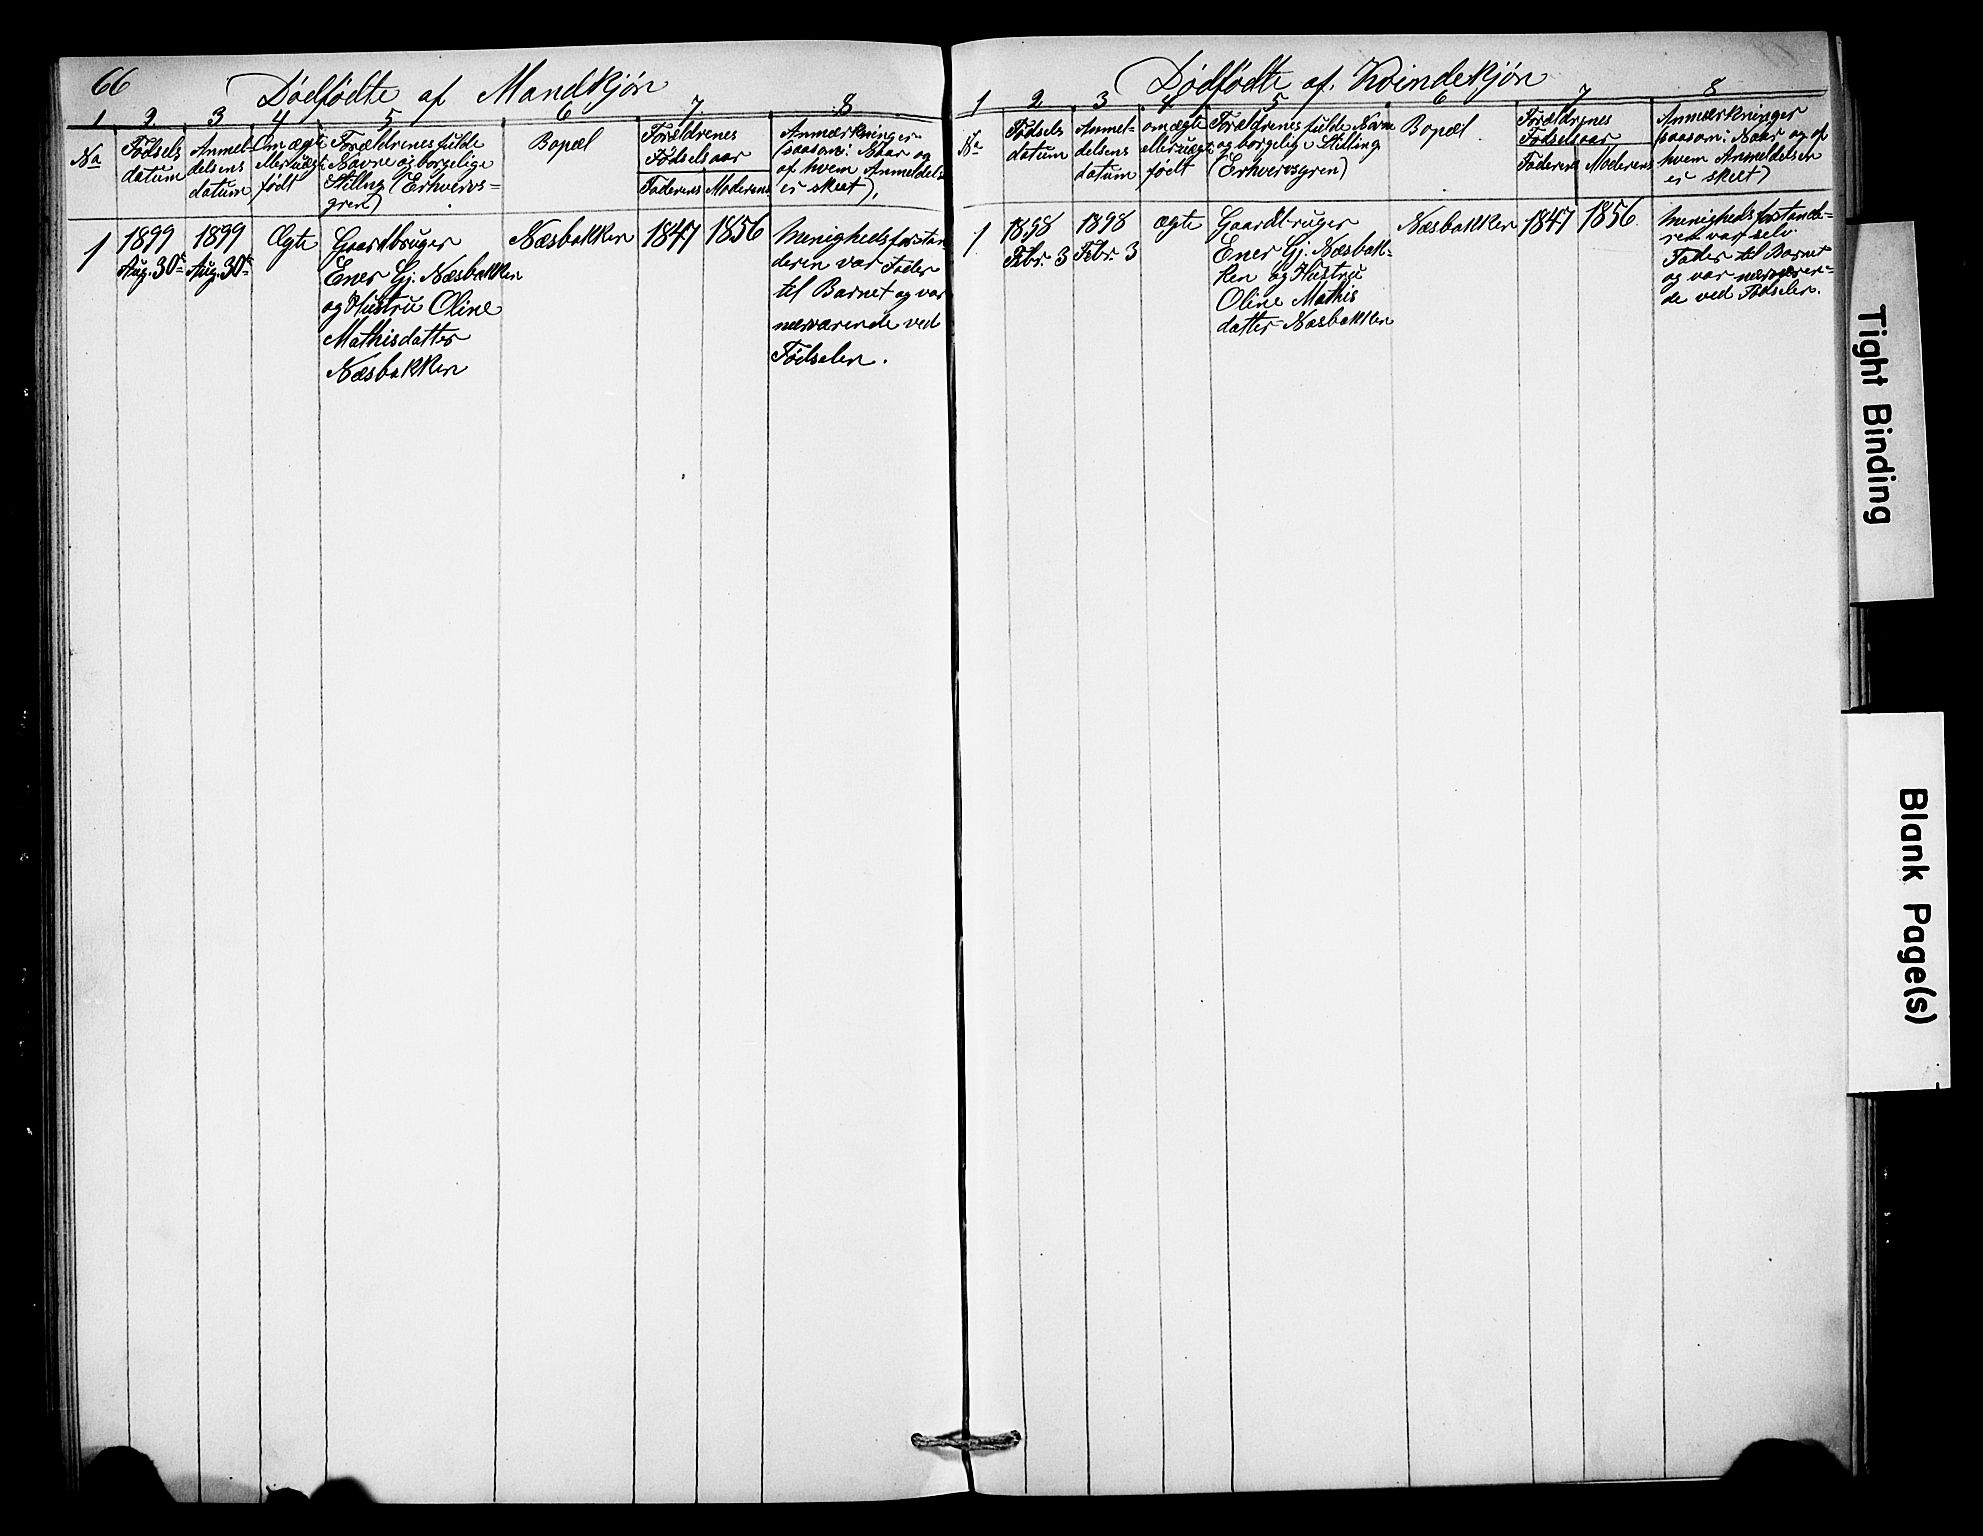 66
Dødfødte af Mandkjøn
1 2 3 4 5 6 7 8
No
Fødsels
datum
Anmel-
delsens
datum
Om ægte
eller uægte
født
Forældrenes fulde
Navne og borgelige
Stilling (Erhvervs-
gren)
Bopæl
Forældrenes
Fødselsaar
Faderens Moderens
Anmærkninger
(saasom: Naar og
af hvem Anmeldels
er skeet),
1
1899
Aug. 30te
1899
Aug. 30te
Ægte
Gaardbruger
Ener Gj. Næsbakken
og Hustru Oline
Mathisdatter
Næsbakken
Næsbakken
1847
1856
Menighedsforstan-
deren var Fader
til Barnet og var
nærværende ved
Fødselen.
Dødfødte af Kvindekjøn
1 2 3 4 5 6 7 8
No
Fødsels
datum
Anmel-
delsens
datum
om ægte
eller uægte
født
Forældrenes fulde Navne
og borgelige Stilling
(Erhvervsgren)
Bopæl
Forældrenes
Fødselsaar
Faderens Moderens
Anmærkninger
saasom: Naar og af
hvem Anmeldelsen
er skeet)
1
1898
Febr. 3
1898
Febr 3
ægte
Gaardbruger
Ener Gj. Næsbak-
ken og Hustru
Oline Mathis
datter Næsbakken
Næsbakken
1847
1856
Menighedsforstande-
ren var selv
Fader til Barnet
og var nærværen-
de ved Fødselen.
Tight Binding
Blank Page(s)